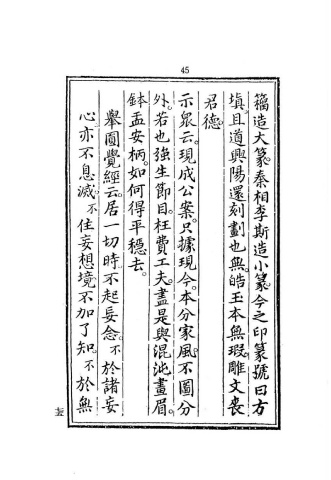 45
籀造大篆秦相李斯造小篆今之印篆號曰方
塡且道興陽還刻劃也無。皓玉本無瑕雕文喪
君德。
示衆云。現成公案。只據現今。本分家風。不圖分
外。若也強生節目。枉費工夫。盡是與混沌畫眉。
鉢盂安柄。如何得平穩去。
擧圓覺經云。居一切時。不起妄念。不於諸妄
心亦不息滅。不住妄想境。不加了知。不於無